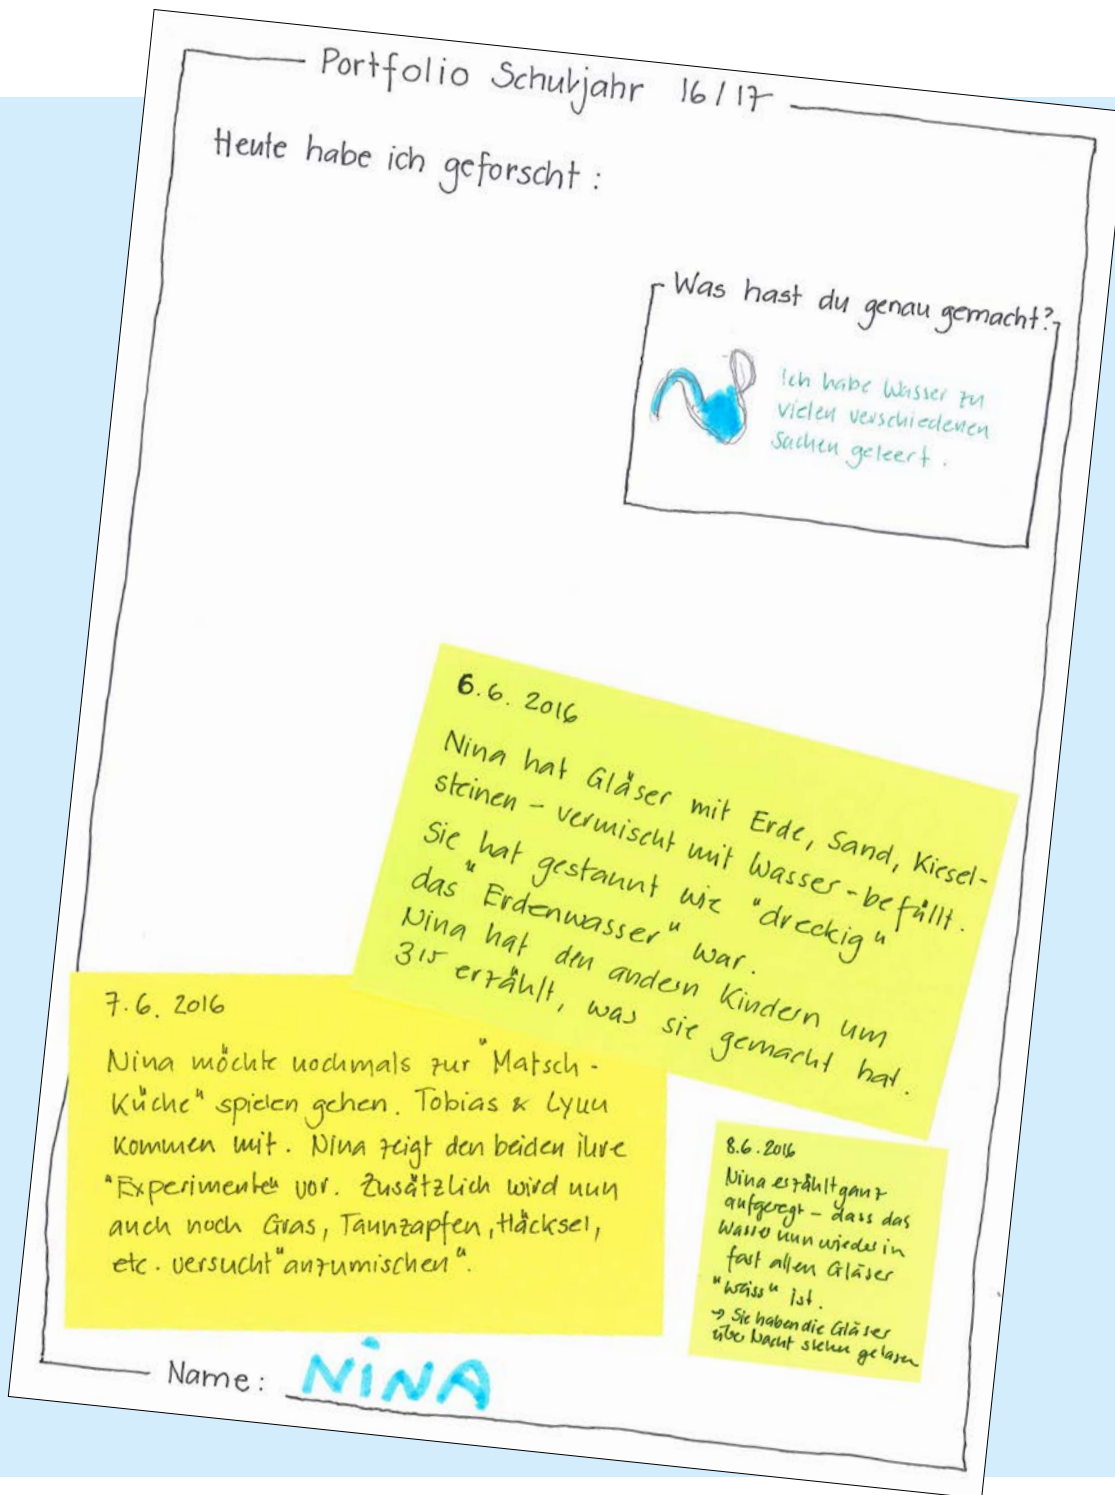 Portfolio Schuljahr 16/17
Heute habe ich geforscht:
Was hast du genau gemacht?
Ich habe Wasser zu
vielen verschiedenen
Sachen geleert.
6.6.2016
Nina hat Gläser mit Erde, Sand, Kiesel-
steinen - vermischt mit Wasser - befüllt.
Sie hat gestaunt wie "dreckig"
das "Erdenwasser" war.
Nina hat den andern Kindern um
315 erzählt, was sie gemacht hat.
7.6.2016
Nina möchte nochmals zur "Matsch-
Küche" spielen gehen. Tobias & Lynn
kommen mit. Nina zeigt den beiden ihre
"Experimente" vor. Zusätzlich wird nun
auch noch Gras, Tannzapfen, Häcksel,
etc. versucht "anzumischen".
8.6.2016
Nina erzählt ganz
aufgeregt - dass das
Wasser nun wieder in
fast allen Gläser
"weiss" ist.
→ Sie haben die Gläser
über Nacht stehn gelassen
Name: NINA